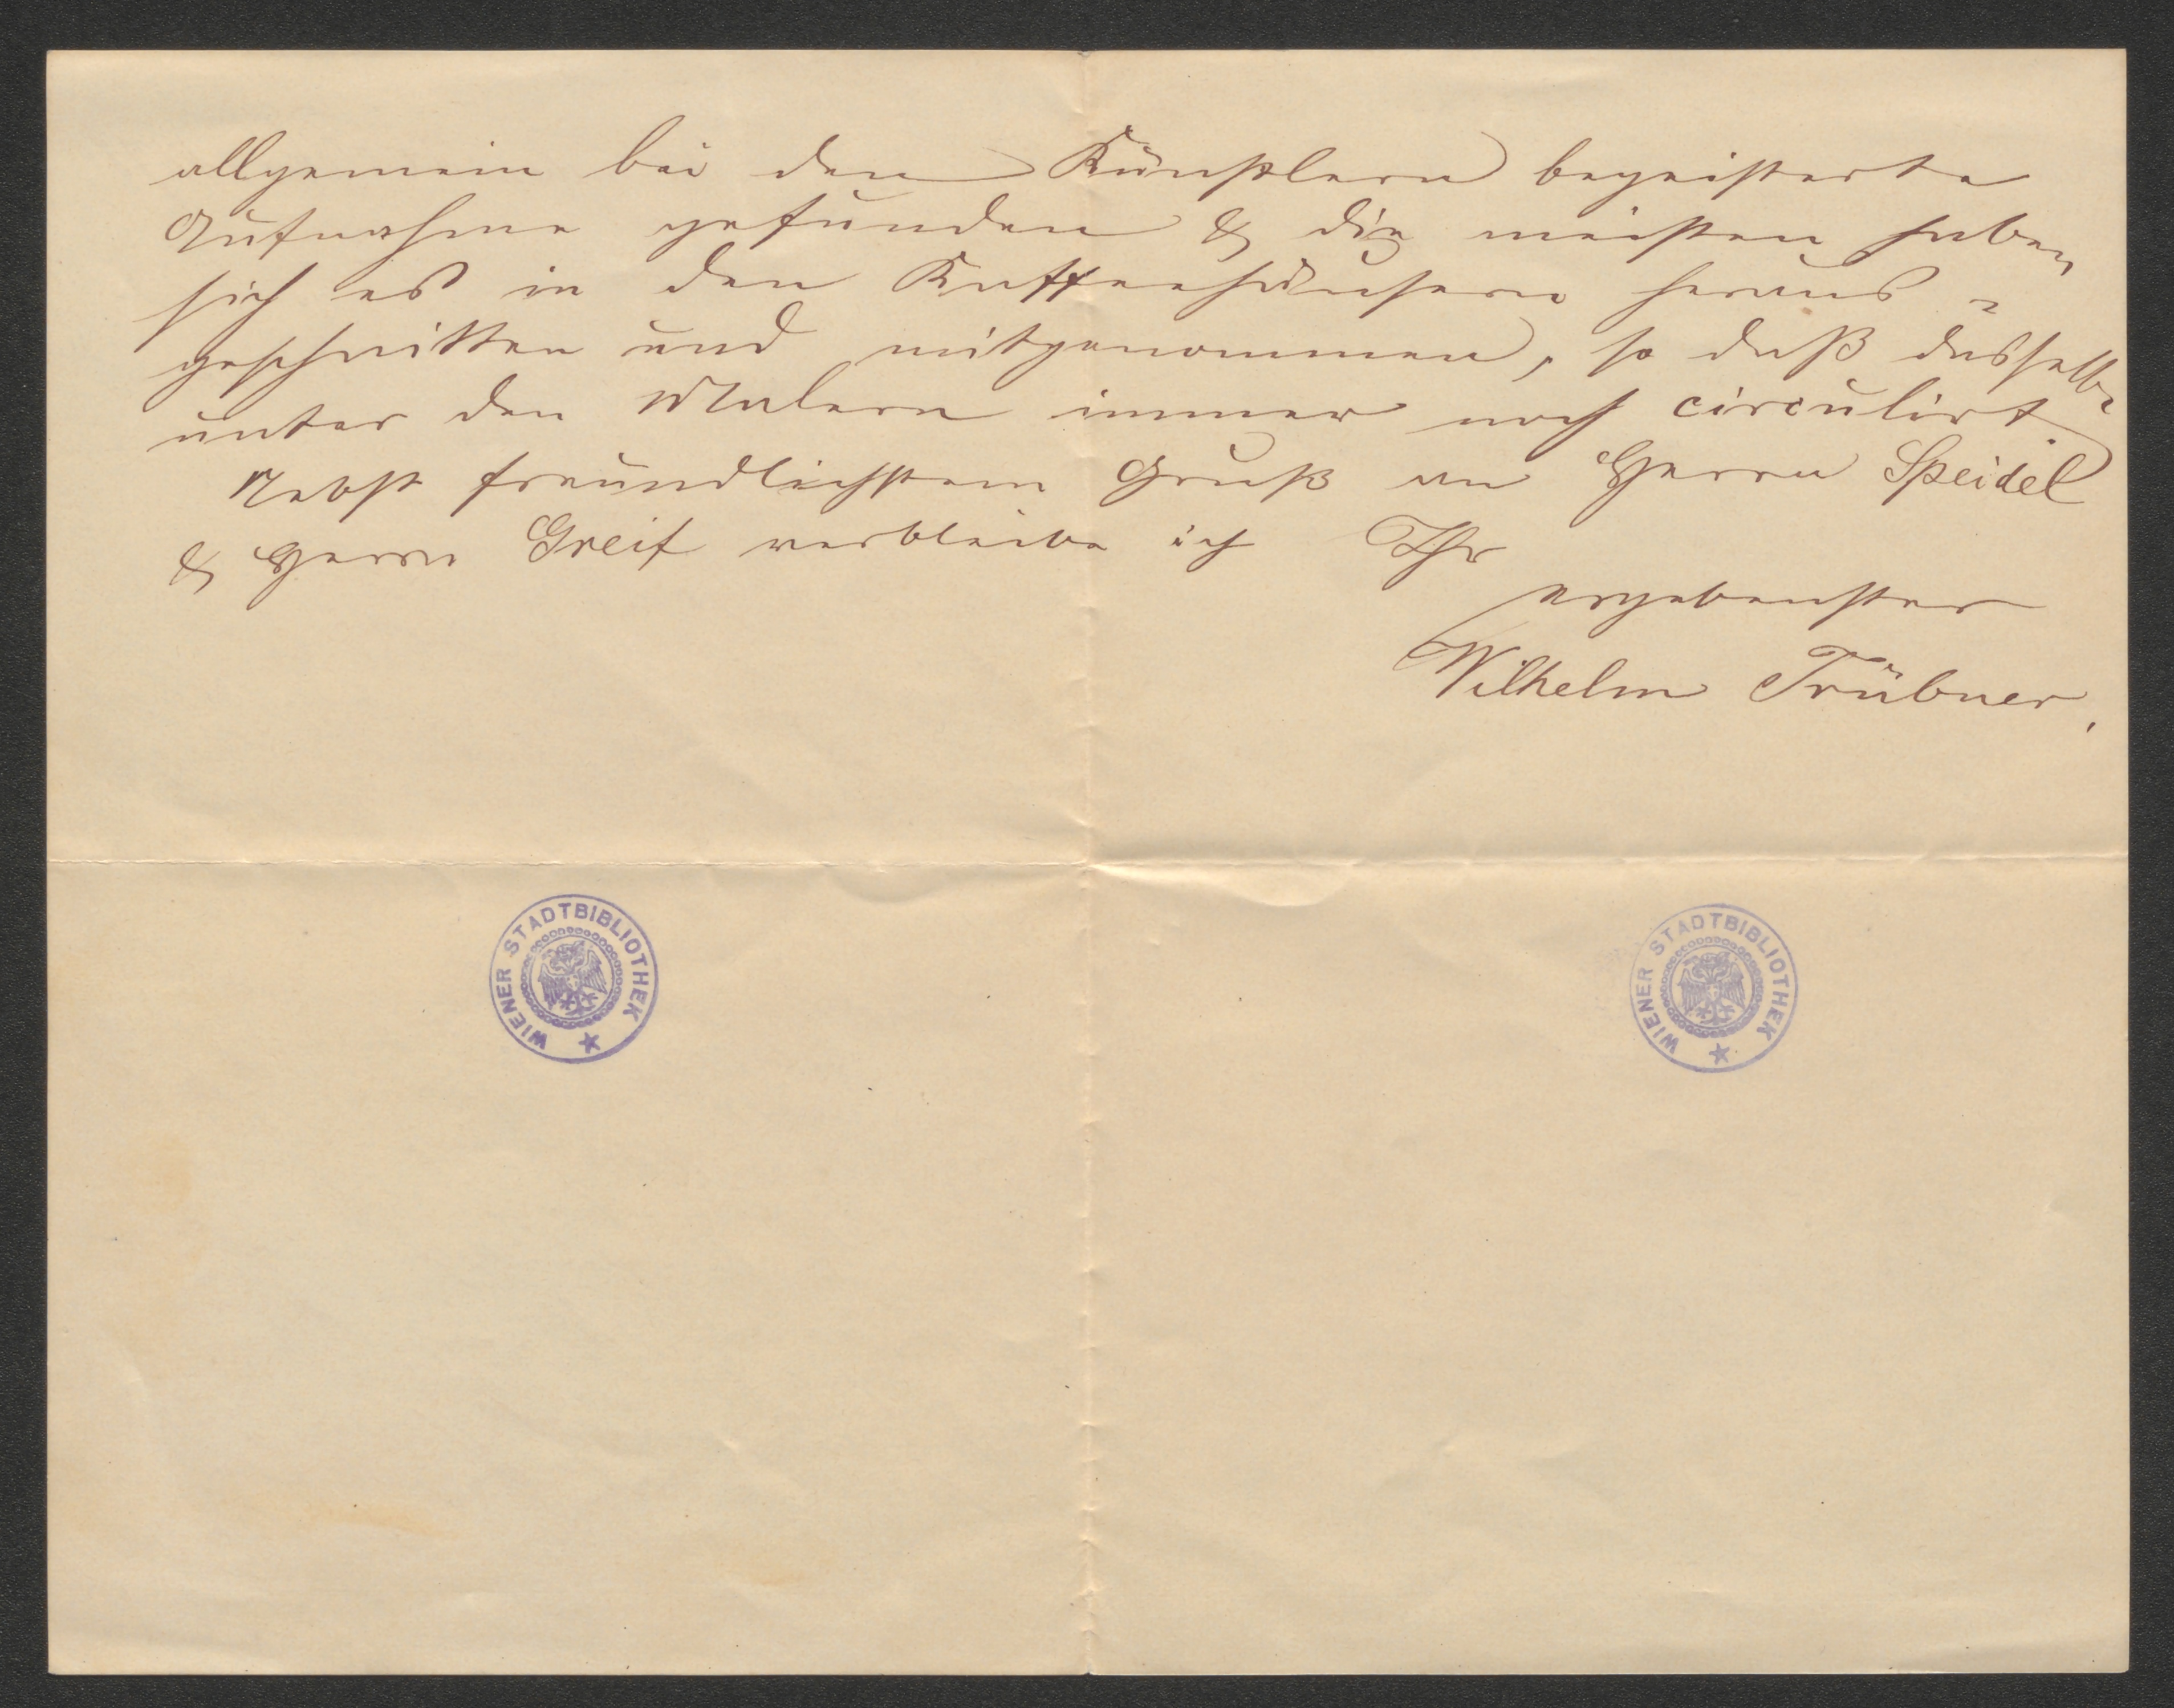 allgemein bei den Künstlern begeisterte
Aufnahme gefunden & die meisten haben
sich es in den Kaffeehäusern heraus=
geschnitten und mitgenommen, so daß dasselbe
unter den Malern immer noch circulirt.
Nebst freundlichstem Gruß an Herrn Speidel
& Herrn Greif verbleibe ich Ihr
ergebenster
Wilhelm Trübner.
WIENER STADTBIBLIOTHEK
WIENER STADTBIBLIOTHEK